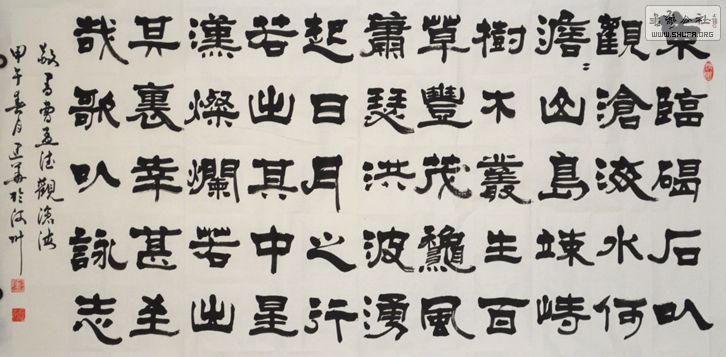 東臨碣石㠯
觀滄海水何
澹〻山島竦峙
樹木叢生百
草豐茂龝風
蕭瑟洪波湧
起日月之行
若出其中星
漢燦爛若出
其裏幸甚至
哉歌㠯詠志
敬書曹孟德觀滄海
甲午春月於汝州
WWW.SHUFA.ORG